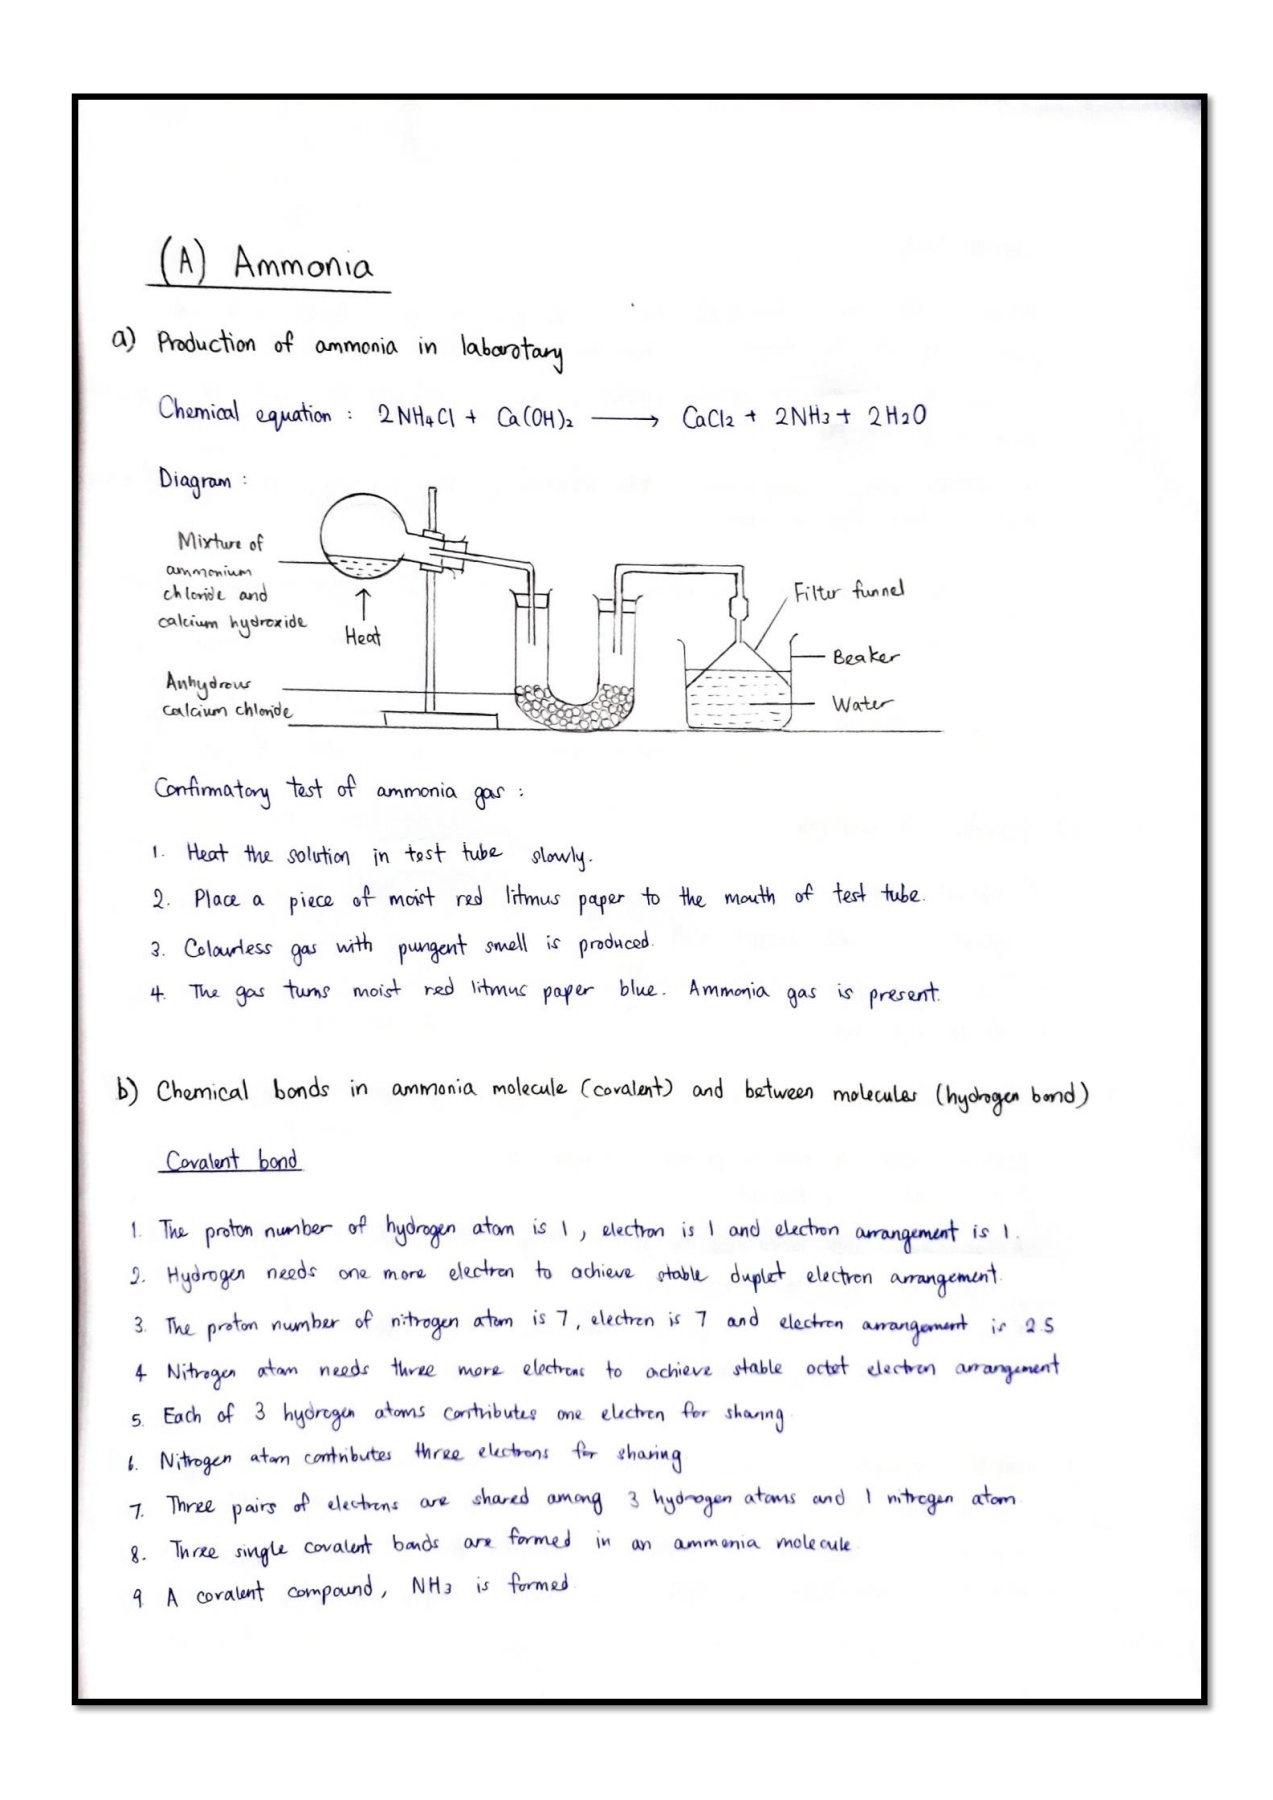 (A) Ammonia
a) Production of ammonia in laborotary
Chemical equation : 2NH4Cl + Ca(OH)2 ⟶ CaCl2 + 2NH3 + 2H2O
Diagram :
Mixture of
ammonium
chloride and
calcium hydroxide
Heat
Anhydrous
calcium chloride
Filter funnel
Beaker
Water
Confirmatory test of ammonia gas :
1. Heat the solution in test tube slowly.
2. Place a piece of moist red litmus paper to the mouth of test tube.
3. Colourless gas with pungent smell is produced.
4. The gas turns moist red litmus paper blue. Ammonia gas is present.
b) Chemical bonds in ammonia molecule (covalent) and between molecules (hydrogen bond)
Covalent bond
1. The proton number of hydrogen atom is 1, electron is 1 and electron arrangement is 1.
2. Hydrogen needs one more electron to achieve stable duplet electron arrangement.
3. The proton number of nitrogen atom is 7, electron is 7 and electron arrangement is 2.5
4 Nitrogen atom needs three more electrons to achieve stable octet electron arrangement
5. Each of 3 hydrogen atoms contributes one electron for sharing.
6. Nitrogen atom contributes three electrons for sharing
7. Three pairs of electrons are shared among 3 hydrogen atoms and 1 nitrogen atom
8. Three single covalent bonds are formed in an ammonia molecule.
9 A covalent compound, NH3 is formed.